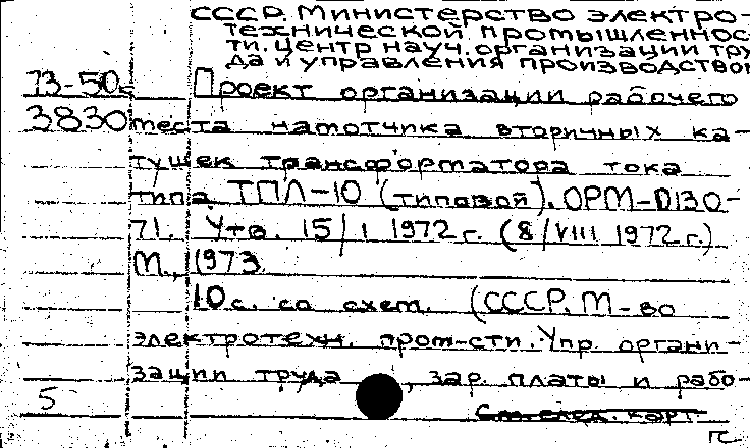 СССР. Министерство электро-
технической промышленнос-
ти. Центр науч. организации тру-
да и управления производством
73-50с Проект организации рабочего
3830 места намотчика вторичных ка-
тушек трансформатора тока
типа ТПЛ-10 (типовой). ОРМ-0130-
71. Утв. 15/I 1972 г. (8/VIII 1972 г.)
М., 1973.
10 с. со схем. (СССР. М-во
электротехн. пром-сти. Упр. органи-
зации труда, зар. платы и рабо-
5 См. след. карт.
ГС